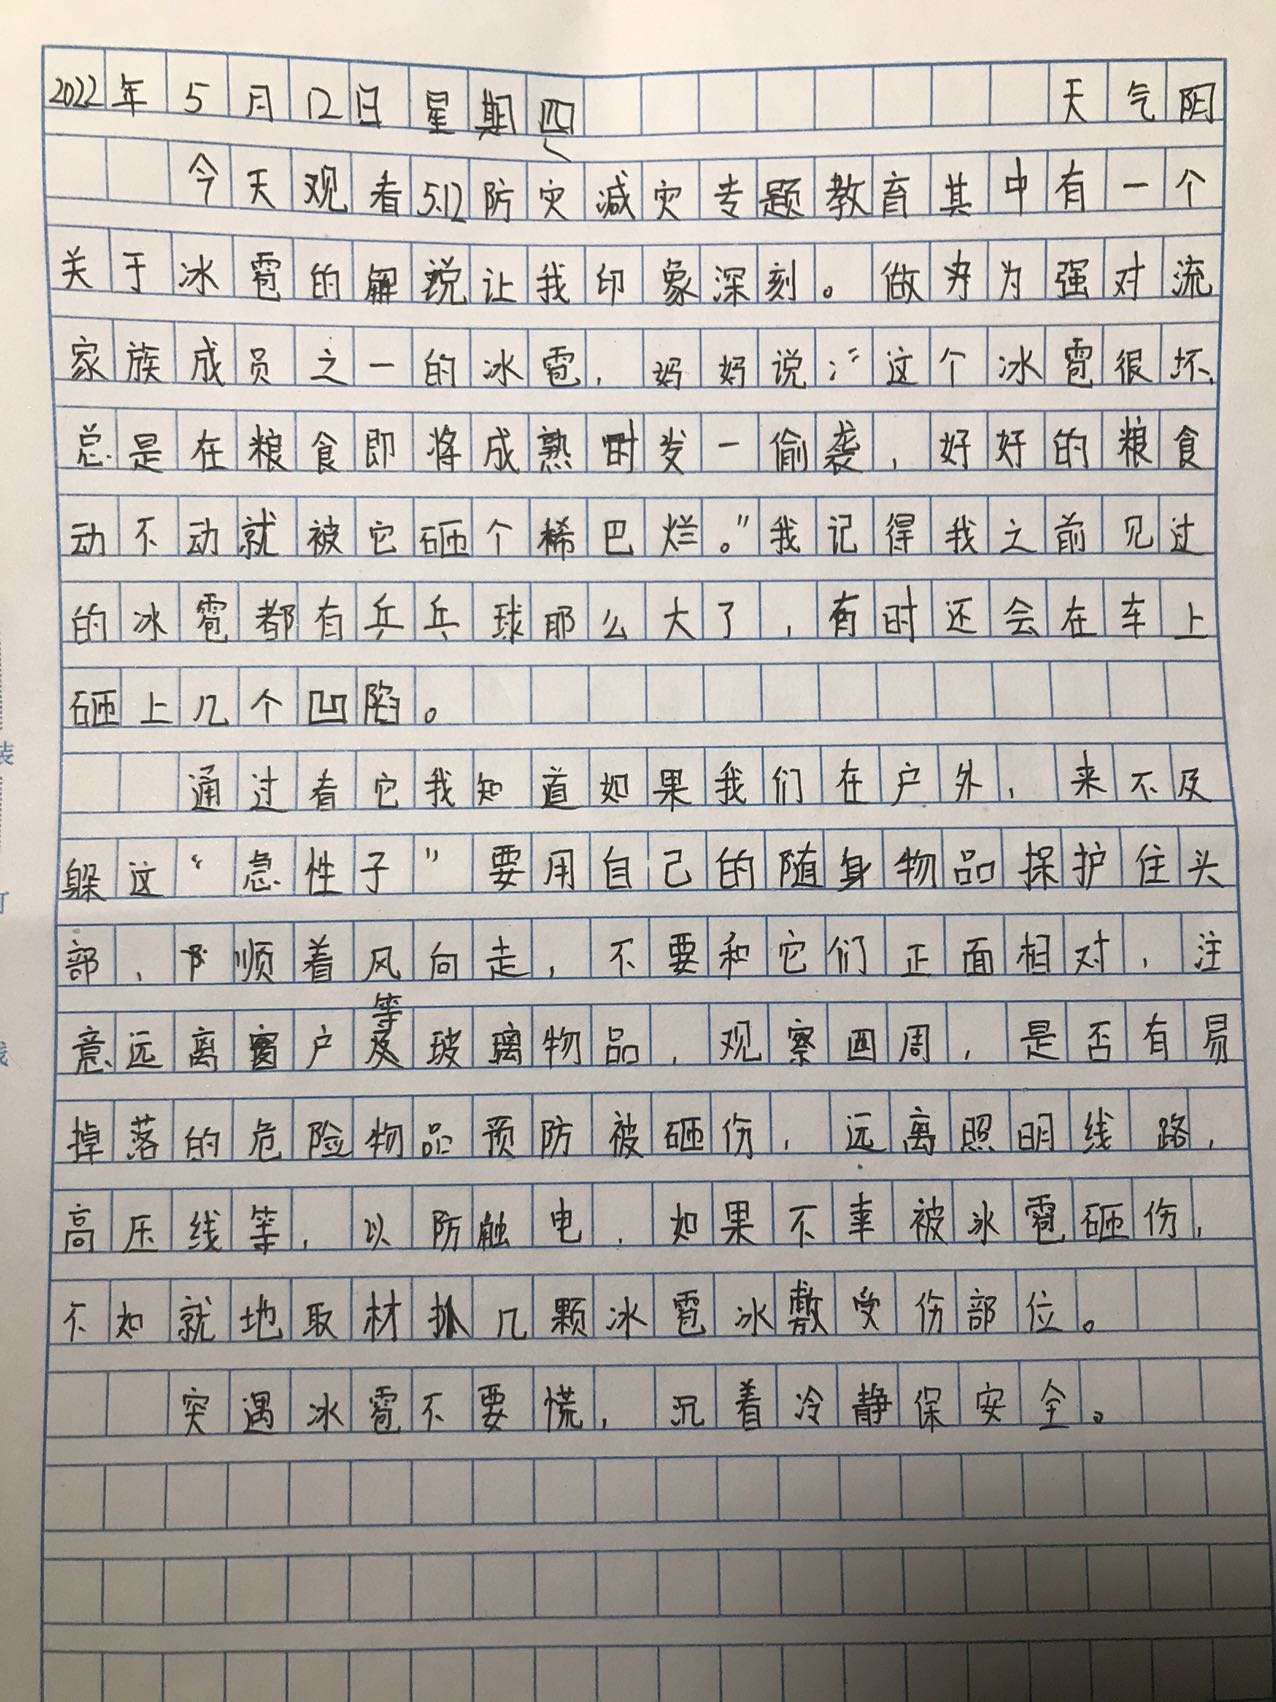 2022年5月12日星期四 天气阴
今天观看5.12防灾减灾专题教育其中有一个
关于冰雹的解说让我印象深刻。做为强对流
家族成员之一的冰雹，妈妈说：“这个冰雹很坏，
总是在粮食即将成熟时发一偷袭，好好的粮食
动不动就被它砸个稀巴烂。”我记得我之前见过
的冰雹都有乒乓球那么大了，有时还会在车上
砸上几个凹陷。
通过看它我知道如果我们在户外，来不及
躲这“急性子”要用自己的随身物品保护住头
部，顺着风向走，不要和它们正面相对，注
意远离窗户等玻璃物品，观察四周，是否有易
掉落的危险物品预防被砸伤，远离照明线路，
高压线等，以防触电，如果不幸被冰雹砸伤，
不如就地取材抓几颗冰雹冰敷受伤部位。
突遇冰雹不要慌，沉着冷静保安全。
装
订
线